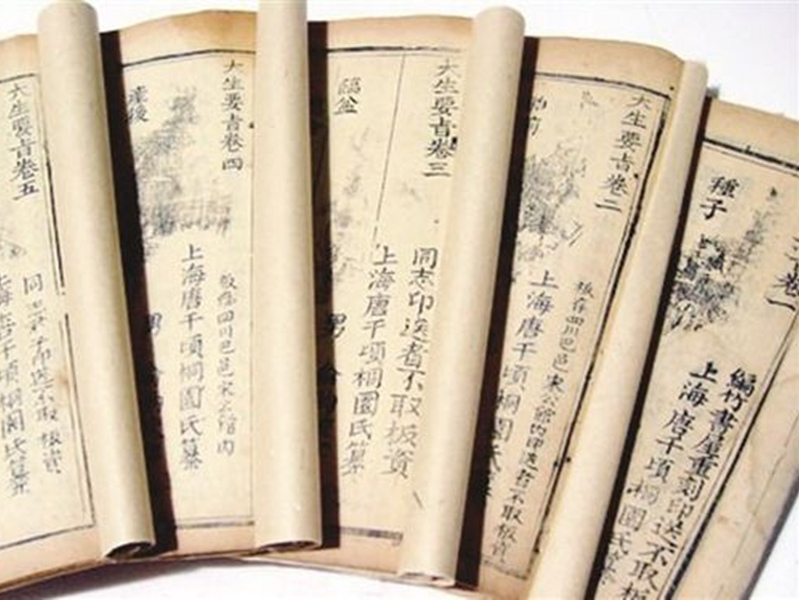 卷一
種子
編竹書屋重刻印送不取板
上海唐千頃桐園氏纂
大生要旨卷二
胎前
板存四川巴邑宋公館內印送者不取板資
上海唐千頃桐園氏
大生要旨卷三
臨盆
同志印送者不取板資
上海唐千頃桐園氏纂
男
大生要旨卷四
產後
板存四川巴邑宋公館內
上海唐千頃桐園氏纂
男
大生要旨卷五
同 印送不取板資
海唐千頃桐園氏纂